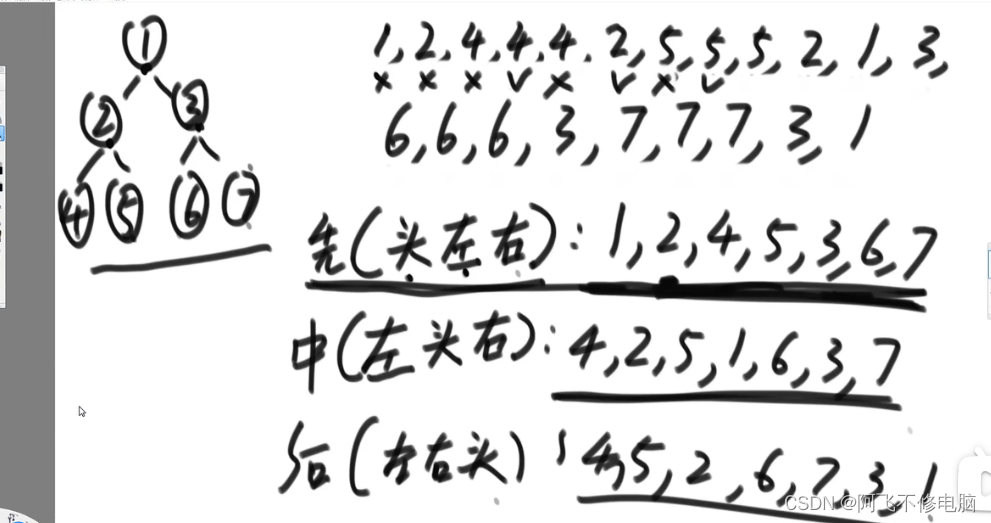 1
2 3
4 5 6 7
1,2,4,4,4,2,5,5,5,2,1,3,
x x x v x v x v
6,6,6,3,7,7,7,3,1
先(头左右):1,2,4,5,3,6,7
中(左头右):4,2,5,1,6,3,7
后(左右头):4,5,2,6,7,3,1
CSDN @阿飞不修电脑